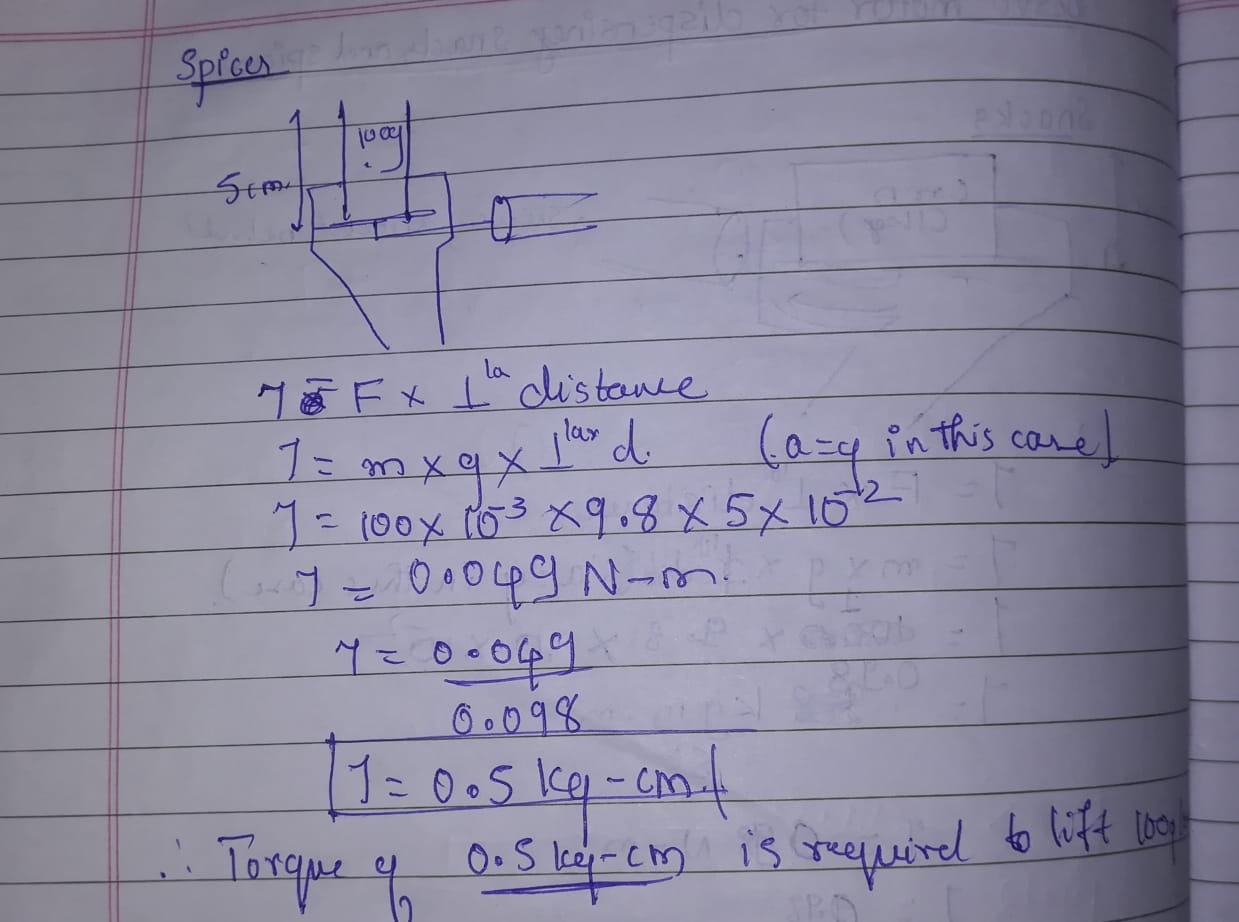 Spices
100g
5cm.
τ = F × ⊥la distance
τ = m × g × ⊥lar d. (a=g in this case)
τ = 100 × 10⁻³ × 9.8 × 5 × 10⁻²
τ = 0.049 N-m.
τ = 0.049
0.098
τ = 0.5 kg-cm.f
∴ Torque of 0.5 kg-cm is required to lift 100g